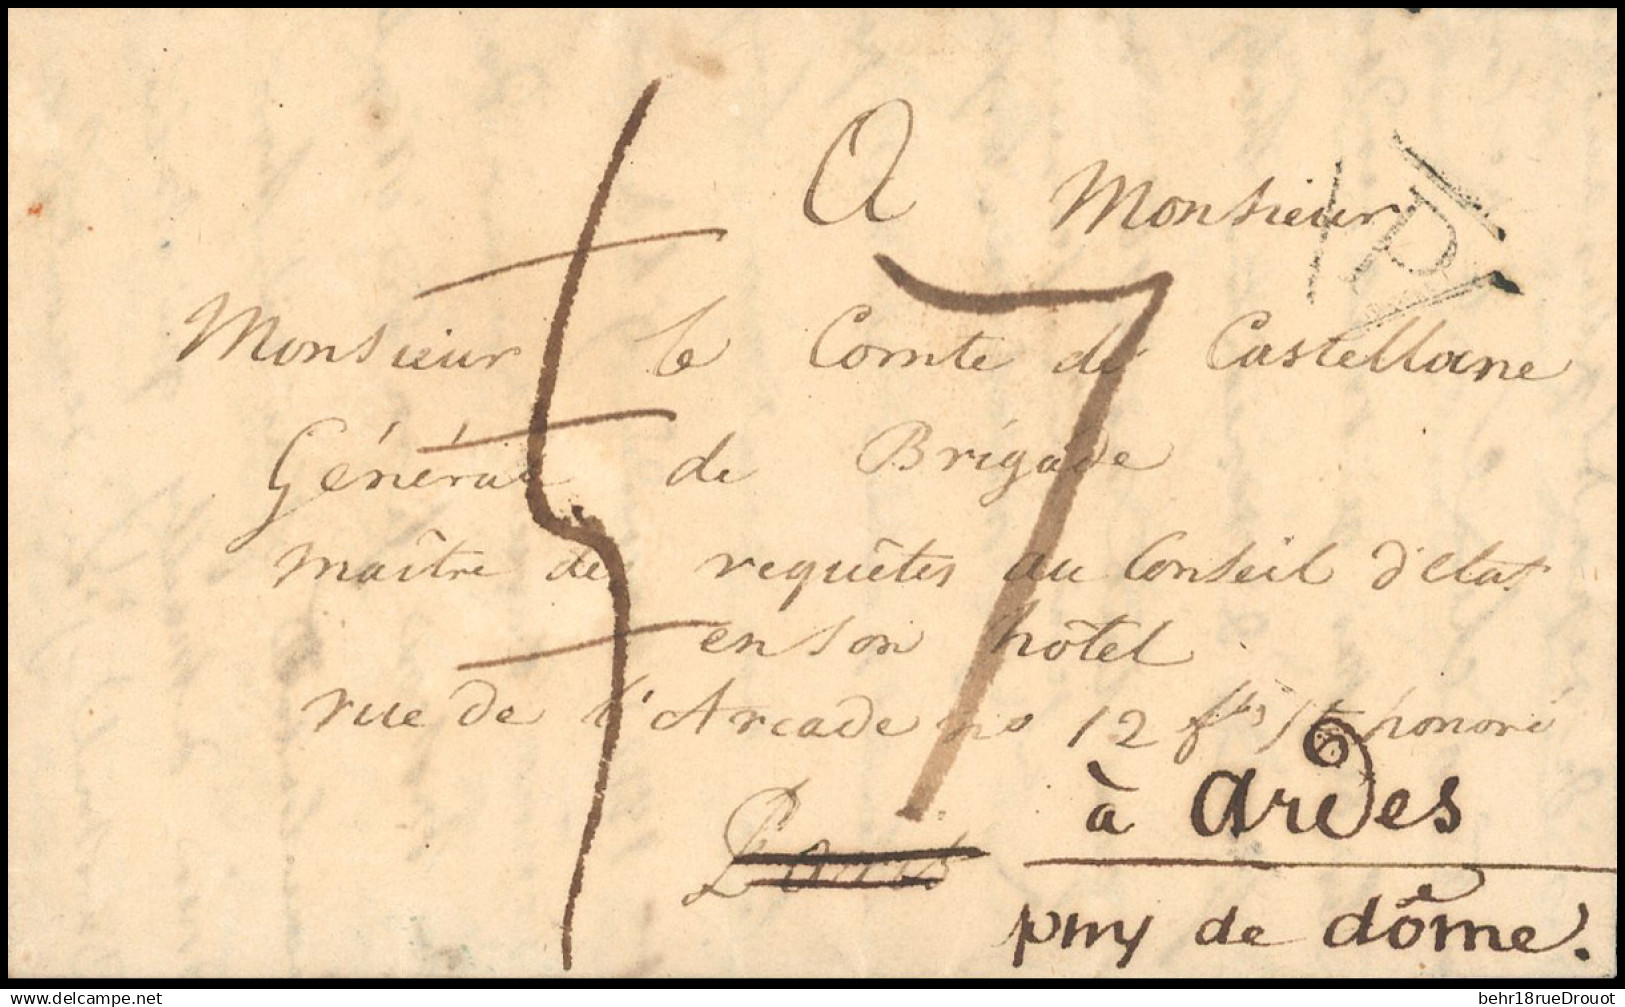 A Monsieur
P
7
Monsieur le Comte de Castellane
Général de Brigade
maître des requêtes au Conseil d'état
en son hôtel
rue de l'Arcade no 12 fbg St honoré
Paris
à Ardes
puy de dôme.
behr18rueDrouot